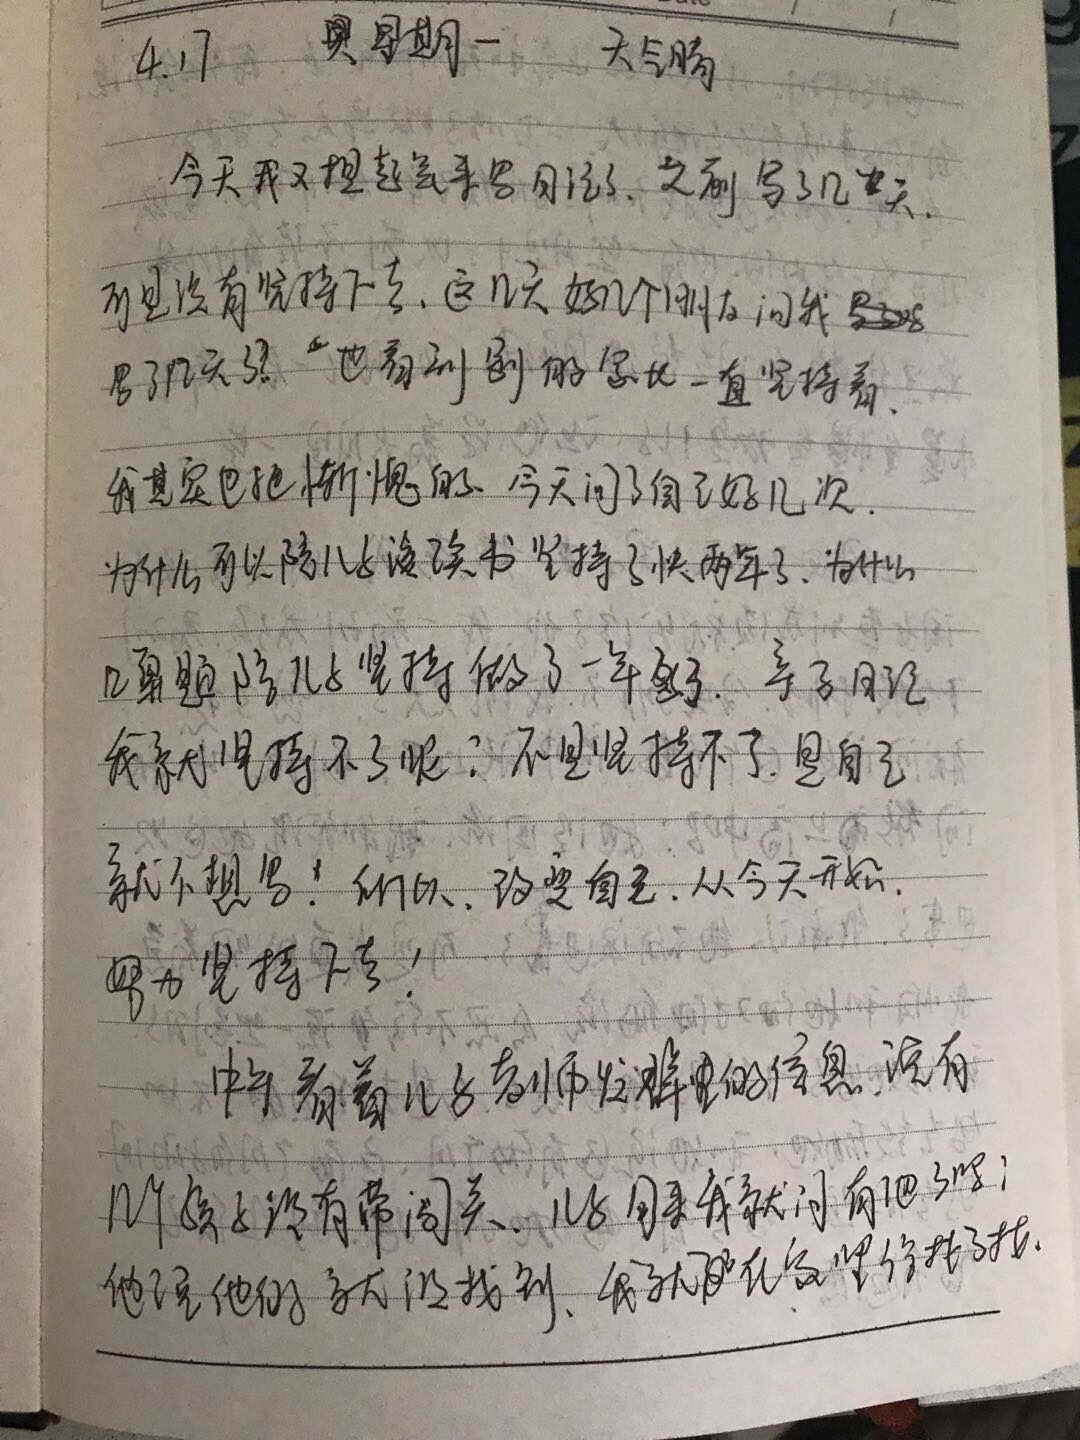 4.17 星期一 天气晴
今天我又提起笔来写日记了、之前写了几天.
可是没有坚持下去、这几天好几个朋友问我
写了几天了? 也看到别的家长一直坚持着、
我其实也挺惭愧的、今天问了自己好几次.
为什么可以陪儿子读书坚持了快两年了、为什么
口算题陪儿子坚持做了一年多了、亲子日记
我就坚持不了呢？不是坚持不了.是自己
就不想写！所以、改变自己、从今天开始.
努力坚持下去！
中午看着儿子老师发群里的信息、说有
几个孩子没有带闯关、儿子回来我就问有他了吗；
他说他的就没找到、我就在家里给找了找.